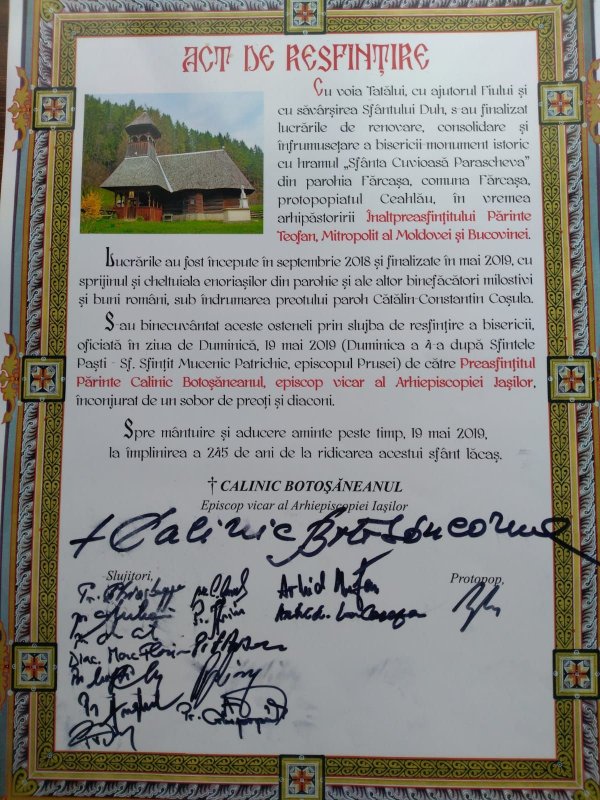 ACT DE RESFINȚIRE
Cu voia Tatălui, cu ajutorul Fiului și
cu săvârșirea Sfântului Duh, s-au finalizat
lucrările de renovare, consolidare și
înfrumusețare a bisericii monument istoric
cu hramul „Sfânta Cuvioasă Parascheva”
din parohia Fărcașa, comuna Fărcașa,
protopopiatul Ceahlău, în vremea
arhipăstoririi Înaltpreasfințitului Părinte
Teofan, Mitropolit al Moldovei și Bucovinei.
Lucrările au fost începute în septembrie 2018 și finalizate în mai 2019, cu
sprijinul și cheltuiala enoriașilor din parohie și ale altor binefăcători milostivi
și buni români, sub îndrumarea preotului paroh Cătălin-Constantin Coșula.
S-au binecuvântat aceste osteneli prin slujba de resfințire a bisericii,
oficiată în ziua de Duminică, 19 mai 2019 (Duminica a 4-a după Sfintele
Paști - Sf. Sfințit Mucenic Patrichie, episcopul Prusei) de către Preasfințitul
Părinte Calinic Botoșăneanul, episcop vicar al Arhiepiscopiei Iașilor,
înconjurat de un sobor de preoți și diaconi.
Spre mântuire și aducere aminte peste timp, 19 mai 2019,
la împlinirea a 245 de ani de la ridicarea acestui sfânt lăcaș.
† CALINIC BOTOȘĂNEANUL
Episcop vicar al Arhiepiscopiei Iașilor
+ Calinic Botoșăneanul
Slujitori,
Protopop,